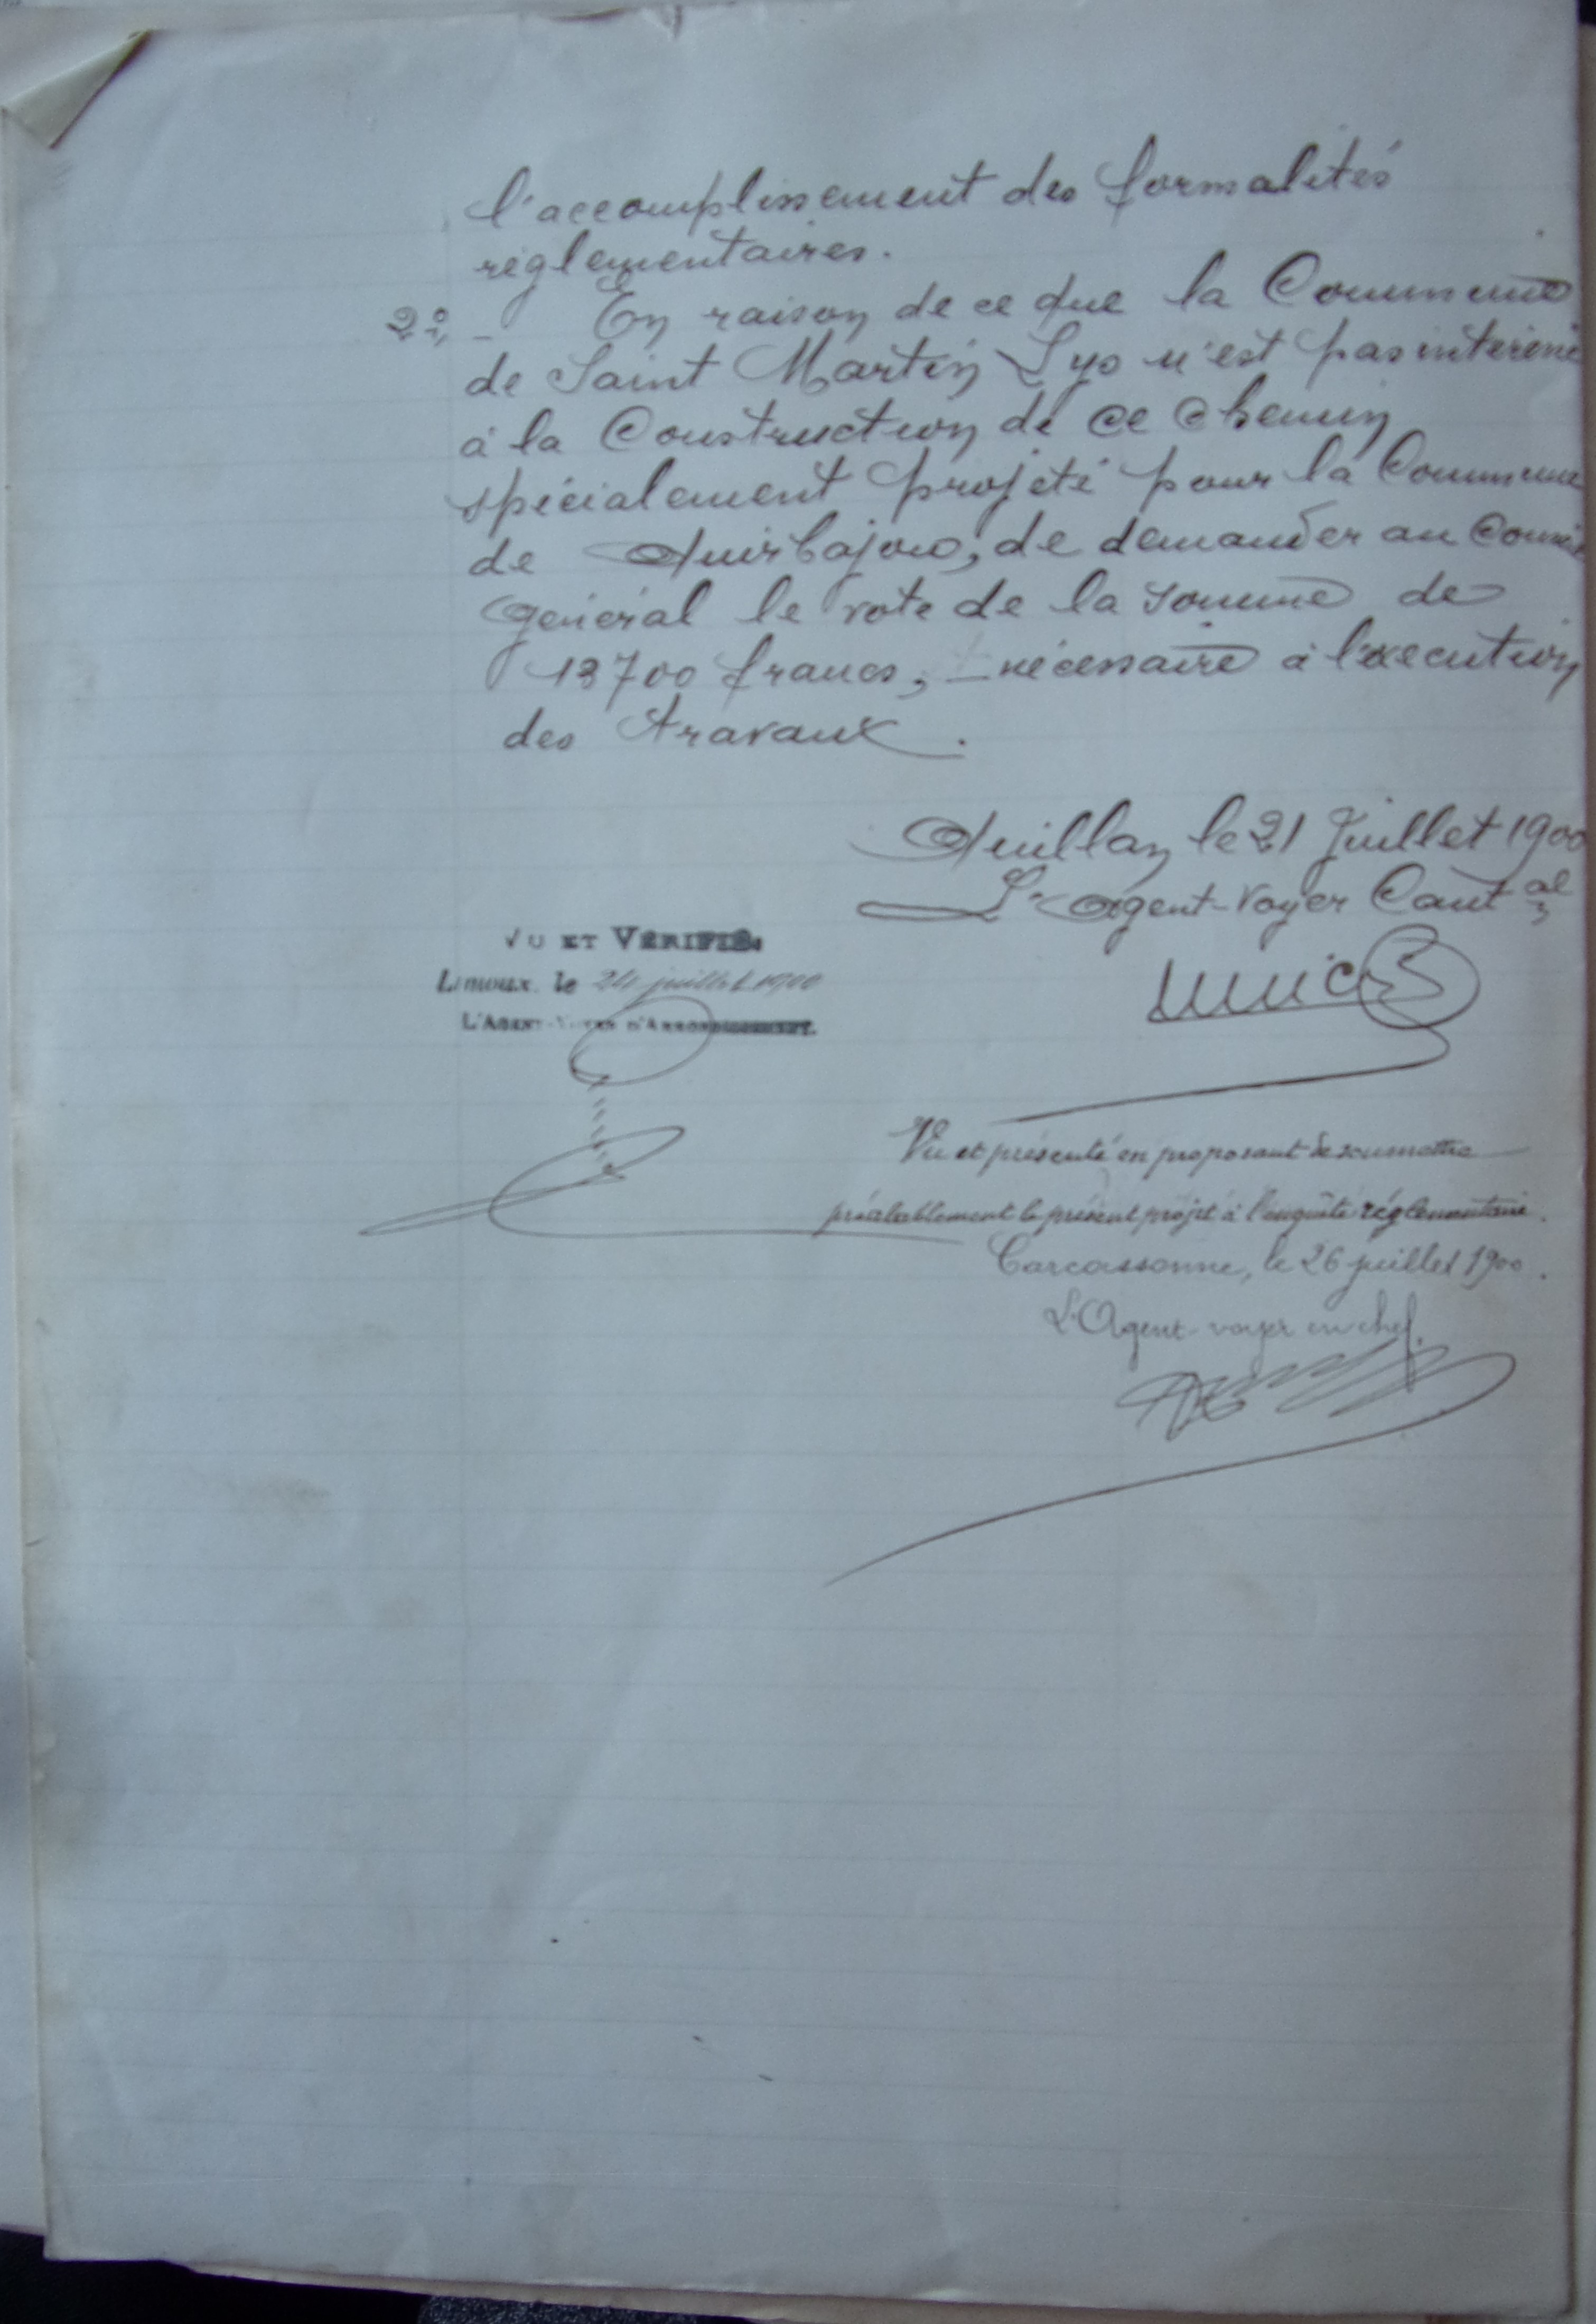 l'accomplissement des formalités
règlementaires.
2°, - En raison de ce que la Commune
de Saint Martin Lys n'est pas
à la Construction de ce Chemin
spécialement projeté pour la Commune
de Quirbajou, de demander au Conseil
général le vote de la somme de
13700 francs, nécessaire à l'execution
des travaux.
Quillan le 21 Juillet 1900
L'agent-voyer Cant.al
VU ET VÉRIFIÉ:
LIMOUX, le 24 juillet 1900
L'AGENT-VOYER D'ARRONDISSEMENT.
Vu et présenté en proposant de soumettre
préalablement le présent projet à l'enquête réglementaire.
Carcassonne, le 26 juillet 1900.
L'Agent-voyer en chef.